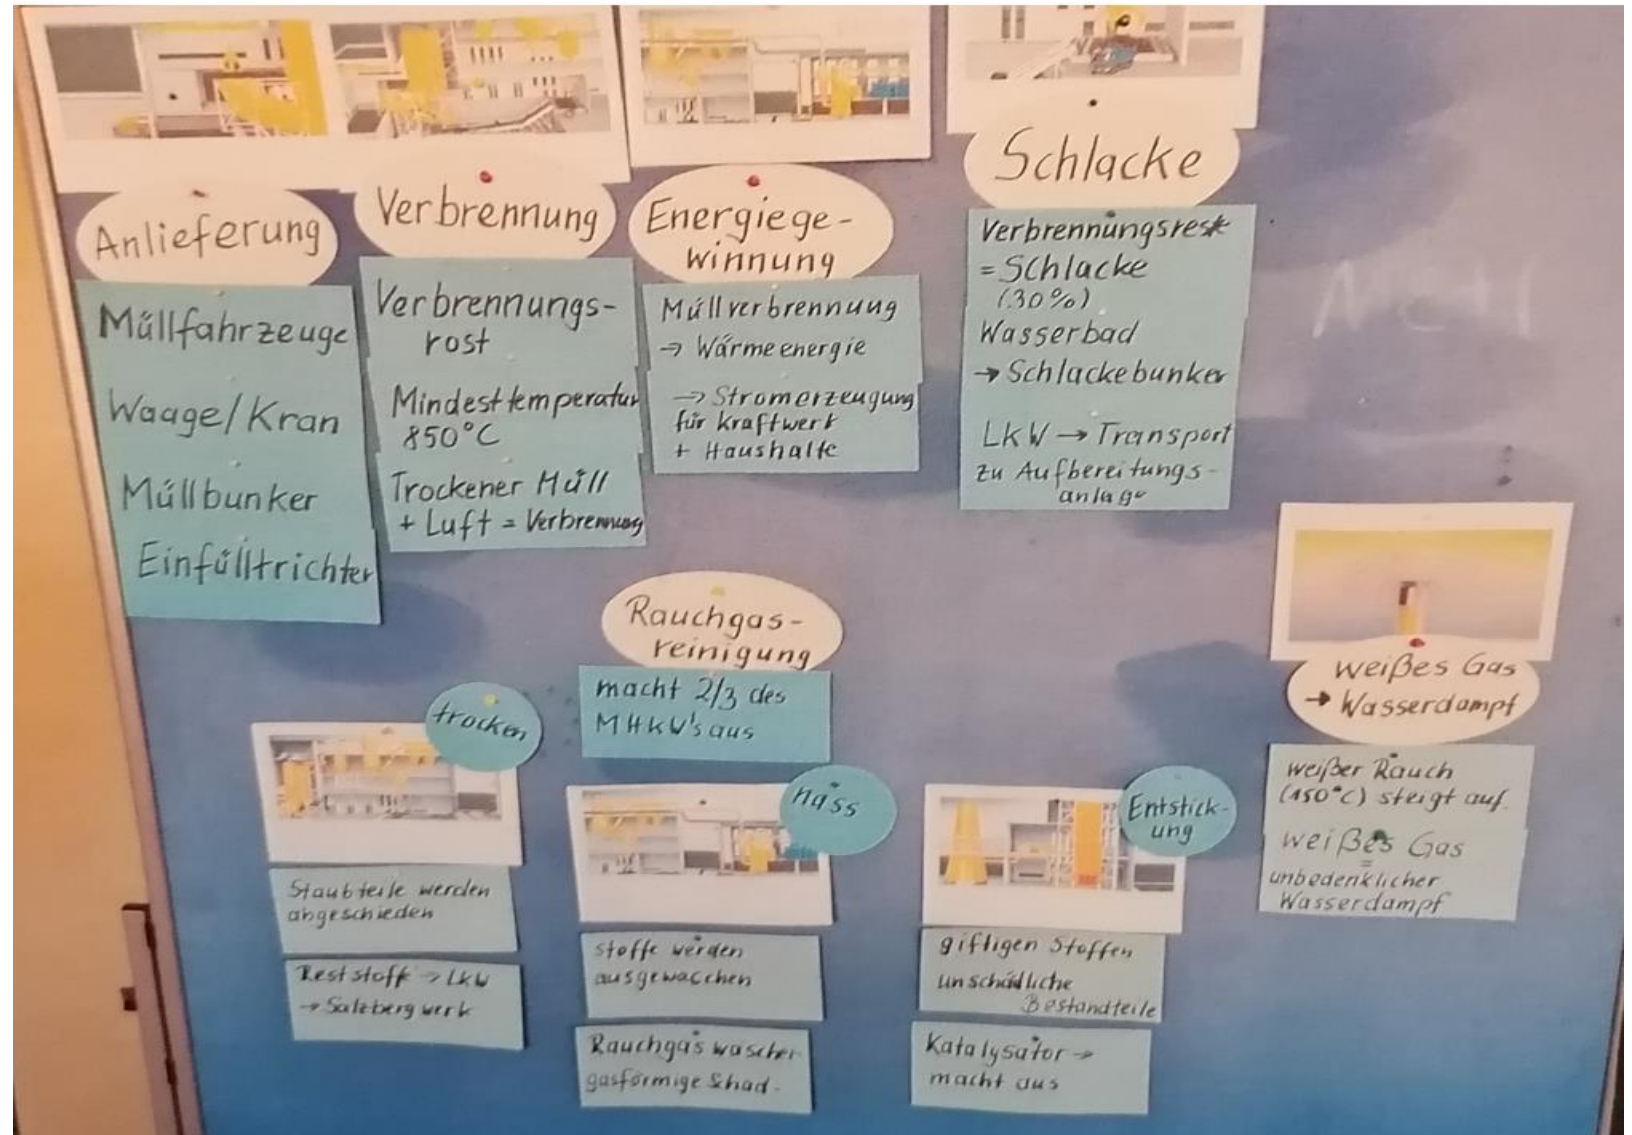 Anlieferung
Müllfahrzeuge
Waage/Kran
Müllbunker
Einfülltrichter
Verbrennung
Verbrennungs-
rost
Mindesttemperatur
850°C
Trockener Müll
+ Luft = Verbrennung
Energiege-
winnung
Müllverbrennung
→ Wärmeenergie
→ Stromerzeugung
für Kraftwerk
+ Haushalte
Schlacke
Verbrennungsreste
= Schlacke
(30%)
Wasserbad
→ Schlackebunker
LKW → Transport
zu Aufbereitungs-
anlage
Rauchgas-
reinigung
macht 2/3 des
MHKW's aus
trocken
Staubteile werden
abgeschieden
Reststoff → LKW
→ Salzbergwerk
nass
stoffe werden
ausgewaschen
Rauchgaswäscher
gasförmige Schad-
Entstick-
ung
giftigen Stoffen
unschädliche
Bestandteile
Katalysator →
macht aus
weißes Gas
→ Wasserdampf
weißer Rauch
(150°C) steigt auf.
weißes Gas
=
unbedenklicher
Wasserdampf